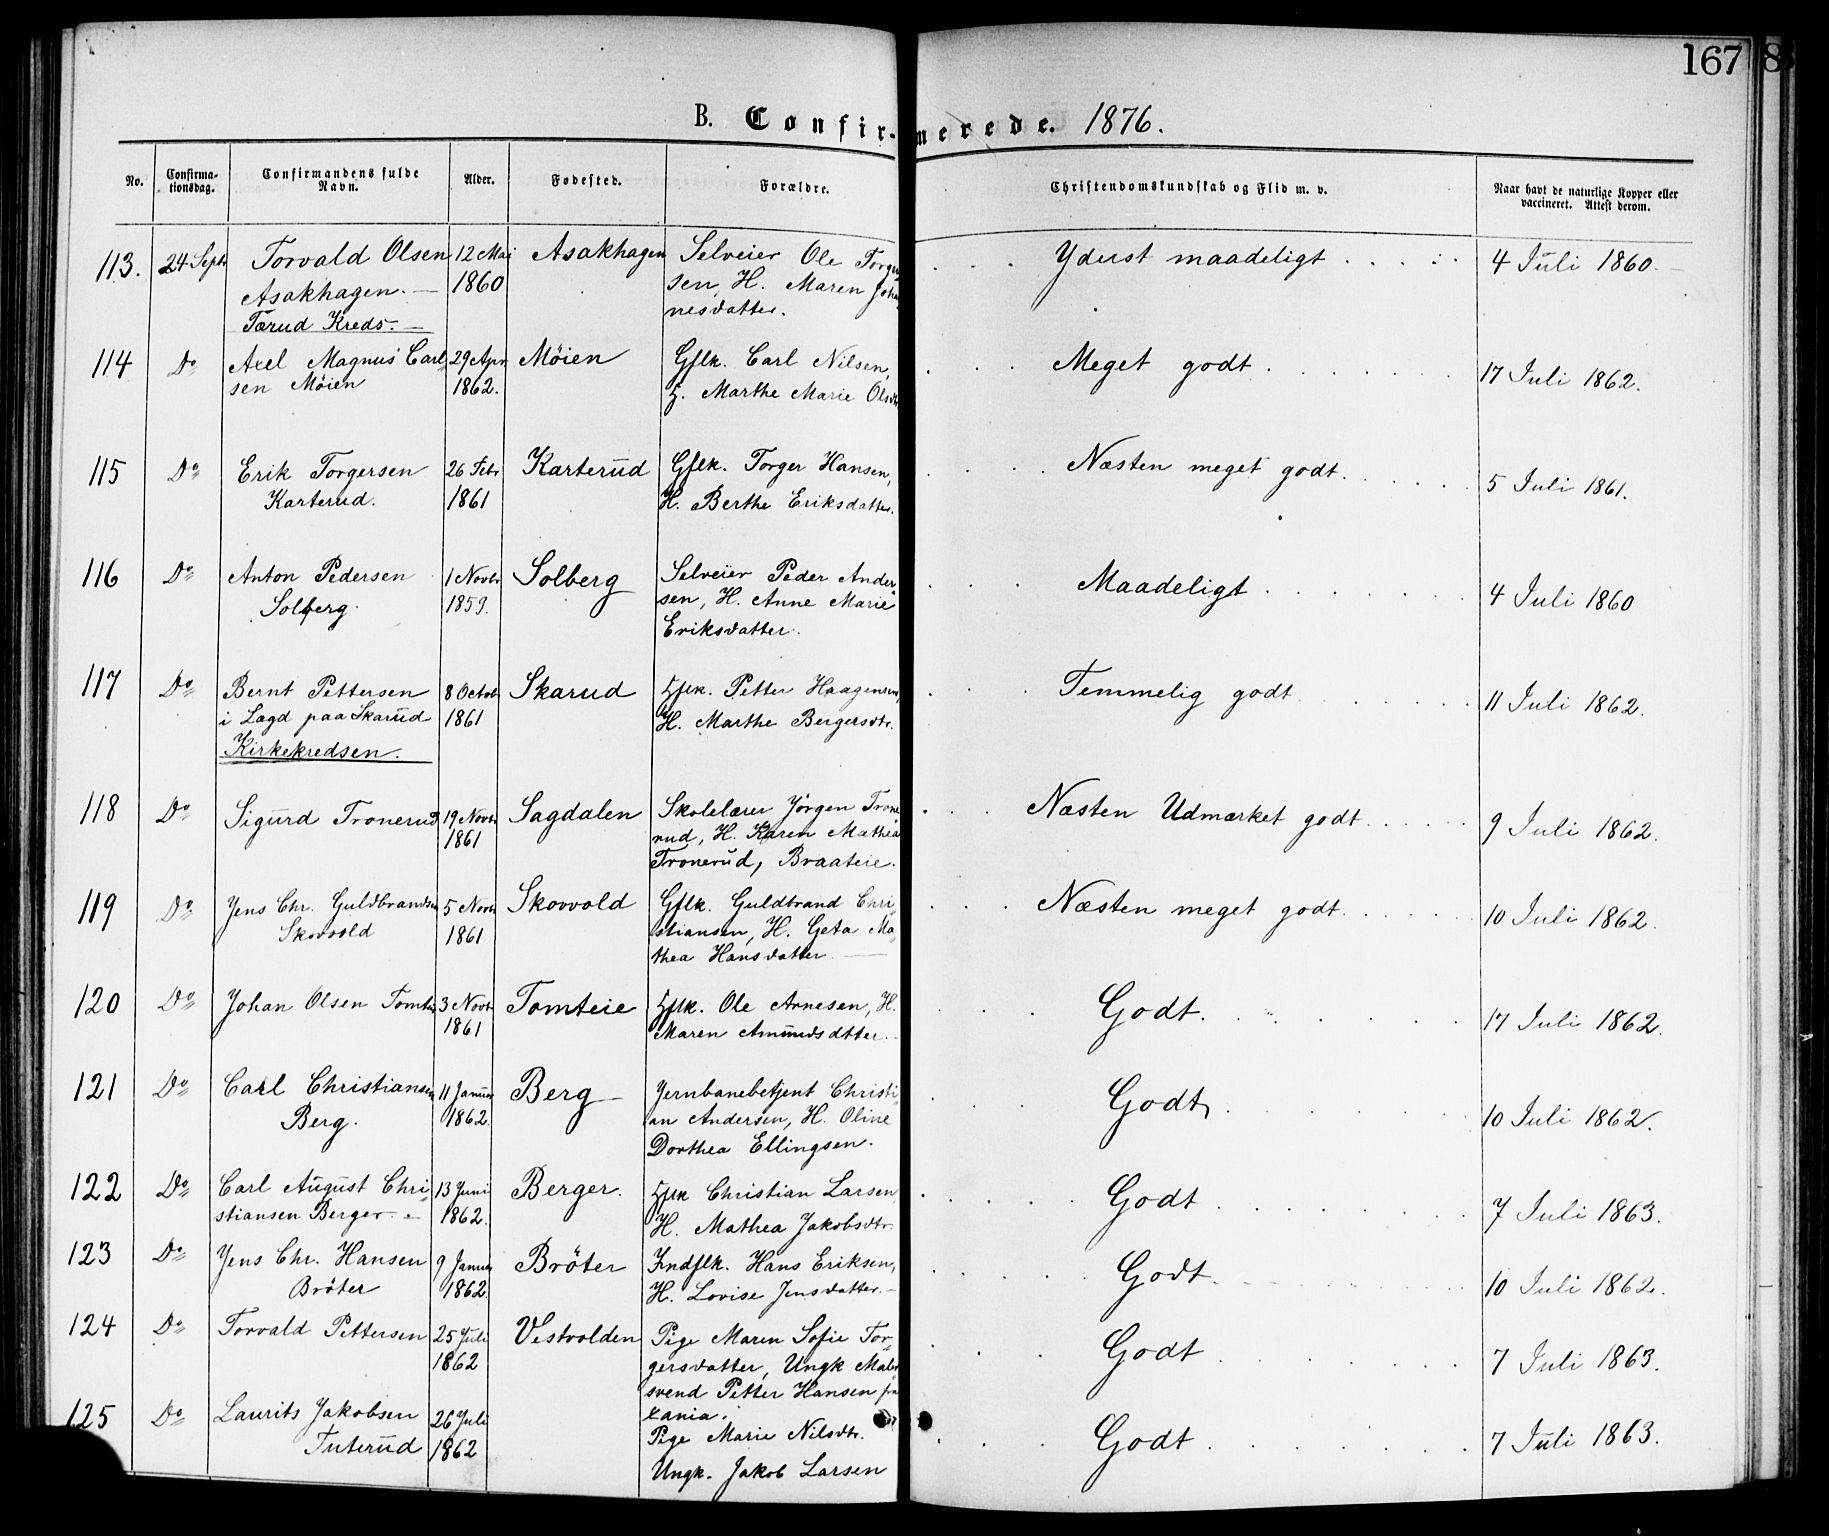 167 8
B. Confir- merede. 1876.
No. Confirma-tionsdag. Confirmandens fulde Navn. Alder. Fødested. Forældre. Christendomskundskab og Flid m. v. Naar havt de naturlige Kopper eller vaccineret. Attest derom.
113. 24 Septr Torvald Olsen 12 Mai Asakhagen Selveier Ole Torger Yderst maadeligt 4 Juli 1860.
Asakhagen. 1860 sen, H. Maren Joha
Tærud Kreds. nesdatter.
114 Do Axel Magnus Carl 29 Apr Møien Gflk. Carl Nilsen, Meget godt 17 Juli 1862.
sen Møien 1862. H. Marthe Marie Olsdtr
115 Do Erik Torgersen 26 Febr Karterud Gflk. Torger Hansen, Næsten meget godt. 5 Juli 1861.
Karterud. 1861 H. Berthe Eriksdatter.
116 Do Anton Pedersen 1 Novbr Solberg Selveier Peder Ander Maadeligt 4 Juli 1860
Solberg. 1859. sen, H. Anne Marie
Eriksdatter.
117 Do Bernt Pettersen 8 Octob Skarud Hflk. Petter Haagensen, Temmelig godt 11 Juli 1862.
i Lægd paa Skarud 1861 H. Marthe Bergersdtr.
Kirkekredsen.
118 Do Sigurd Tronerud 19 Novbr Sagdalen Skolelærer Jørgen Trone Næsten Udmærket godt 9 Juli 1862.
1861 rud, H. Karen Mathea
Tronerud, Braateie.
119 Do Jens Chr. Guldbrandsen 5 Novbr Skovvold Gflk. Guldbrand Chri- Næsten meget godt. 10 Juli 1862.
Skovvold 1861 stiansen, H. Geta Ma-
thea Hansdatter
120 Do Johan Olsen Tomtei 3 Novbr Tomteie Hflk. Ole Arnesen, H. Godt. 17 Juli 1862.
1861 Maren Amundsdtter.
121 Do Carl Christiansen 11 Januar Berg Jernbanebetjent Christi- Godt, 10 Juli 1862.
Berg. 1862. an Andersen, H. Oline
Dorthea Ellingsen.
122 Do Carl August Chri 13 Juni Berger. Hflk Christian Larsen Godt 7 Juli 1863.
stiansen Berger 1862. H. Mathea Jakobsdtr.
123 Do Jens Chr. Hansen 9 Januar Brøter Indflk. Hans Eriksen, Godt. 10 Juli 1862.
Brøter 1862. H. Lovise Jensdatter.
124 Do Torvald Pettersen 25 Juli Vestvolden Pige Maren Sofie Tor- Godt 7 Juli 1863.
1862 gersdatter, Ungk Maler
svend Petter Hansen fra
Xania.
125 Do Laurits Jakobsen 26 Juli Pige Marie Nilsdtr. Godt 7 Juli 1863.
Tuterud 1862 Ungk. Jakob Larsen